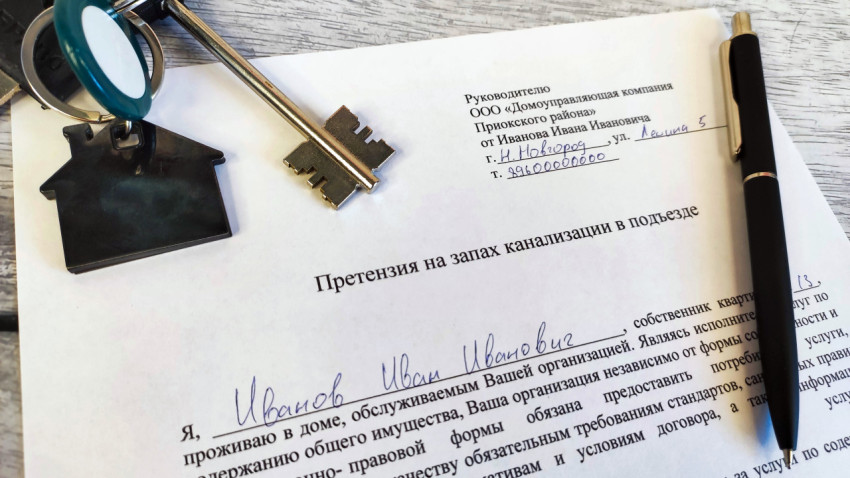 Руководителю
ООО «Домоуправляющая компания
Приокского района»
от Иванова Ивана Ивановича
г. Н.Новгород, ул. Ленина 5
т. 89600000000
Претензия на запах канализации в подъезде
Я, Иванов Иван Иванович, собственник кварти 13,
проживаю в доме, обслуживаемым Вашей организацией. Являясь исполните луг по
одержанию общего имущества, Ваша организация независимо от формы со ности и
нно- правовой формы обязана предоставить потреби услуги,
честву обязательным требованиям стандартов, сан ых прави
ативам и условиям договора, а та информа
за услуги по соде